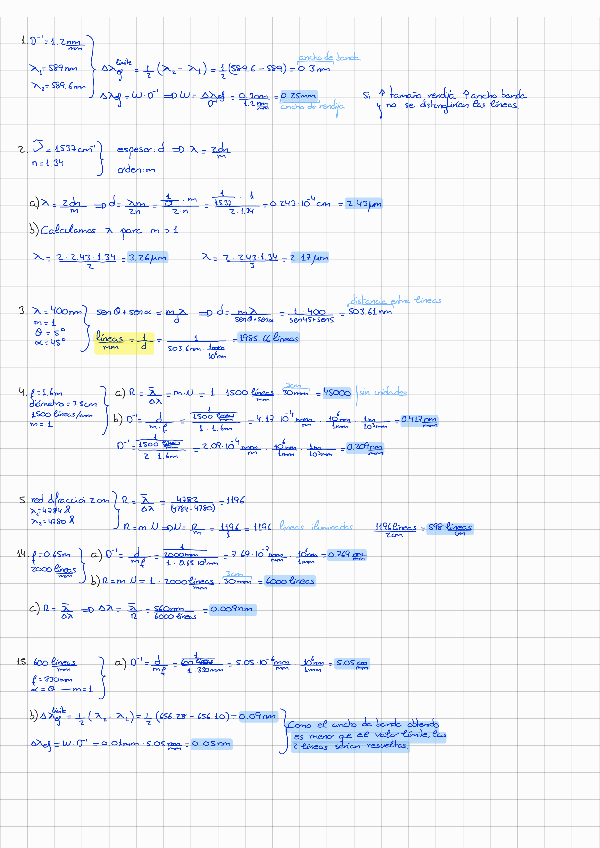 1. D⁻¹ = 1.2 nm/mm
λ₁ = 589 nm
λ₂ = 589.6 nm
Δλef límite = 1/2 (λ₂ - λ₁) = 1/2 (589.6 - 589) = 0.3 nm
ancho de banda
Δλef = W · D⁻¹ ⇒ W = Δλef / D⁻¹ = 0.3 nm / 1.2 nm/mm = 0.25 mm
ancho de rendija
Si ↑ tamaño rendija ↑ ancho banda
y no se distinguirían las líneas
2. ν̄ = 1537 cm⁻¹
n = 1.34
espesor: d ⇒ λ = 2dn/m
orden: m
a) λ = 2dn/m ⇒ d = λm/2n = 1/ν̄ · m / 2·n = 1/1537 · 1 / 2·1.34 = 0.243·10⁻⁴ cm = 2.43 µm
b) Calculamos λ para m > 1
λ = 2·2.43·1.34 / 2 = 3.26 µm λ = 2·2.43·1.34 / 3 = 2.17 µm
3. λ = 400 nm
m = 1
θ = 5°
α = 45°
sen θ + sen α = mλ/d ⇒ d = mλ / senθ + senα = 1·400 / sen45 + sen5 = 503.61 nm
distancia entre líneas
líneas/mm = 1/d = 1 / 503.6 nm · 1mm/10⁶nm = 1985.66 líneas
4. f = 1.6 m
diámetro = 7.5 cm
1500 líneas/mm
m = 1
a) R = λ̄/Δλ = m·N = 1 · 1500 líneas/mm · 30 mm = 45000 sin unidades
3cm
b) D⁻¹ = d/m·f = 1/1500 / 1·1.6m = 4.17·10⁻⁴ mm/m · 10⁶nm/1mm · 1m/10³mm = 0.417 nm/mm
D⁻¹ = 1/1500 / 2·1.6m = 2.09·10⁻⁴ mm/m · 10⁶nm/1mm · 1m/10³mm = 0.209 nm/mm
5. red difracción 2 cm
λ₁ = 4784 Å
λ₂ = 4780 Å
R = λ̄/Δλ = 4782 / (4784 - 4780) = 1196
R = m·N ⇒ N = R/m = 1196/1 = 1196 líneas iluminadas 1196 líneas/2cm = 598 líneas/cm
14. f = 0.65 m
2000 líneas/mm
a) D⁻¹ = d/mf = 1/2000mm / 1·0.65·10³mm = 7.69·10⁻⁷ mm/mm · 10⁶nm/1mm = 0.769 nm/mm
b) R = m·N = 1 · 2000 líneas/mm · 30 mm = 6000 líneas
3cm
c) R = λ̄/Δλ ⇒ Δλ = λ̄/R = 560 nm / 6000 líneas = 0.009 nm
15. 600 líneas/mm
f = 330 mm
α = θ → m = 1
a) D⁻¹ = d/mf = 1/600 / 1·330mm = 5.05·10⁻⁶ mm/mm · 10⁶nm/1mm = 5.05 nm/mm
b) Δλef límite = 1/2 (λ₂ - λ₁) = 1/2 (656.28 - 656.10) = 0.09 nm
Δλef = W · D⁻¹ = 0.01 mm · 5.05 nm/mm = 0.05 nm
Como el ancho de banda obtenido
es menor que el valor límite, las
2 líneas serían resueltas.